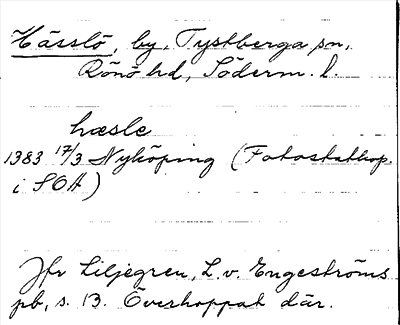 Hässlö, by, Tystberga sn,
Rönö hd, Söderm. l.
hæsle
1383 17/3 Nyköping (Fotostatkop.
i SOA)
Jfr Liljegren, L. v. Engeströms
pb, s. 13. Överhoppat där.